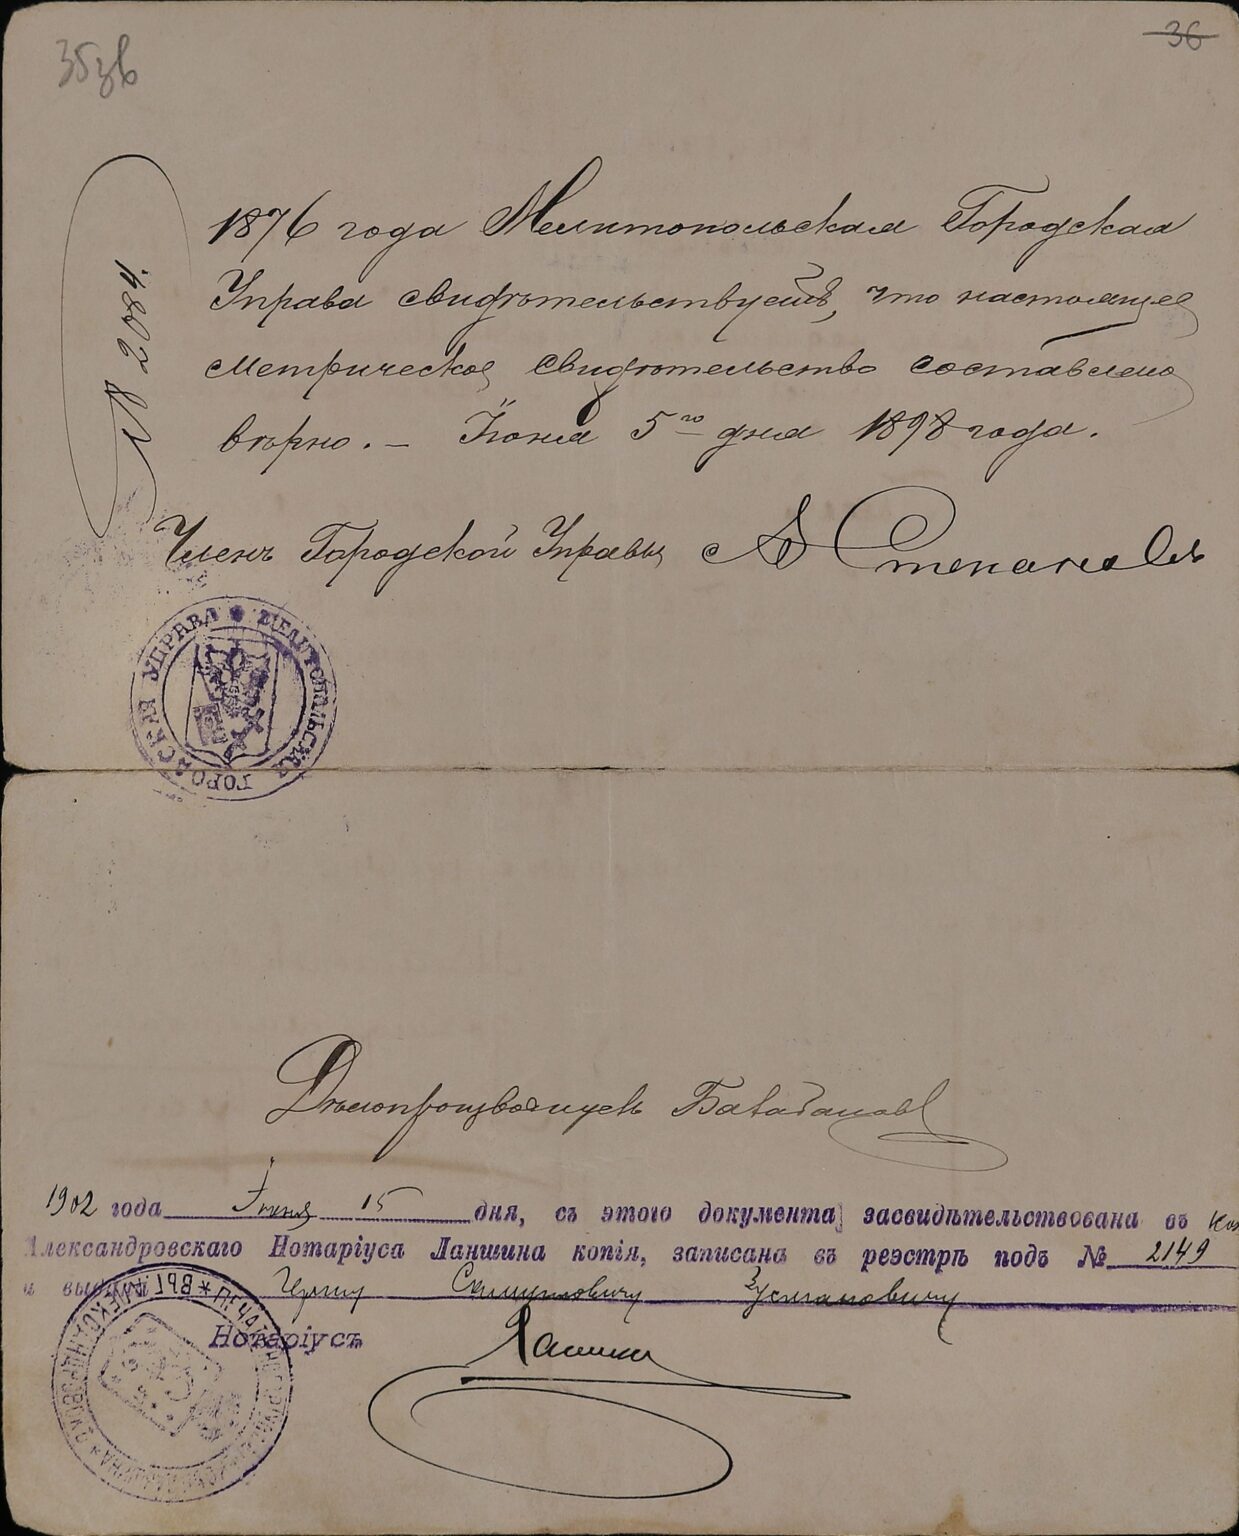 35зв
36
№ 2084.
1876 года Мелитопольская Городская
Управа свидѣтельствуетъ, что настоящее
метрическое свидѣтельство составлено
вѣрно. – Іюня 5го дня 1898 года.
Членъ Городской Управы А Степановъ
МЕЛИТОПОЛЬСКАЯ ГОРОДСКАЯ УПРАВА
Дѣлопроизводитель
1902 года Іюня 15 дня, съ этого документа засвидѣтельствована въ
Александровскаго Нотаріуса Ланшина копія, записана въ реэстрѣ подъ № 2149
и выдана
Нотаріусъ Ланшин